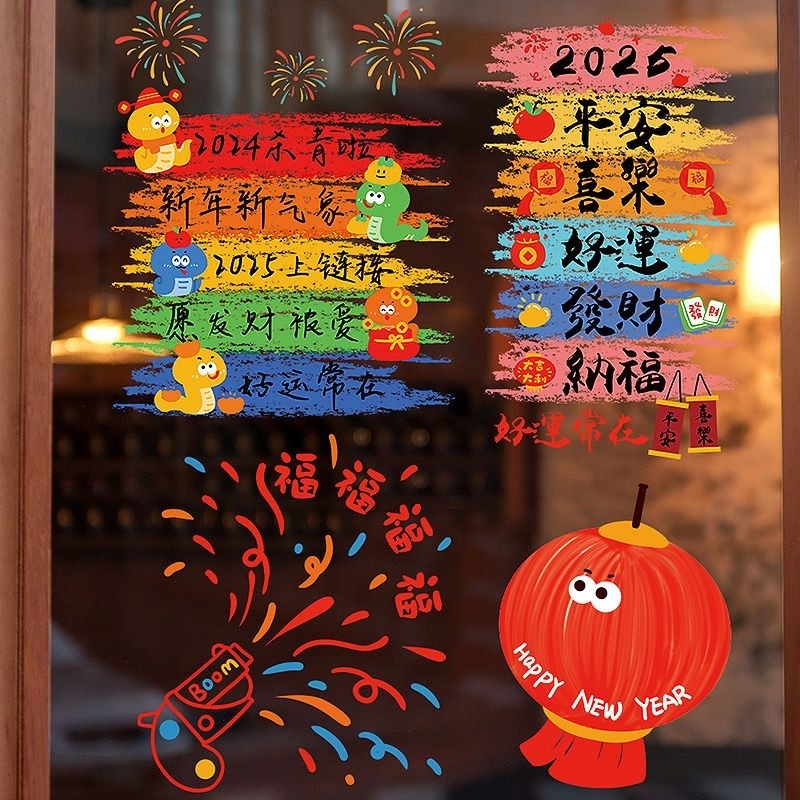 2024杀青啦
新年新气象
2025上链接
原发财被爱
好运常在
2025
平安
喜樂
福
好運
發財
發財
大吉
大利
納福
好運常在
平安
喜樂
福
福
福
福
BOOM
HAPPY NEW YEAR